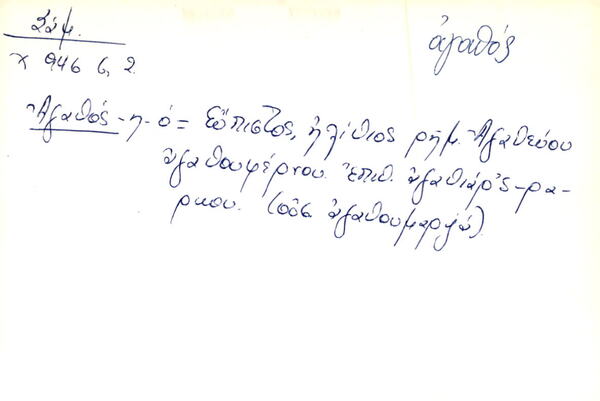 Σάμ.
ἀγαθός
χ 946 6, 2
Ἀγαθός -η -ό = Εὔπιστος, ἠλίθιος ρῆμ. Ἀγαθεύου
ἀγαθουφέρνου. Ἐπιθ. ἀγαθιάρ'ς -ρα-
ρκου. (οὐσ. ἀγαθουμαργιά).